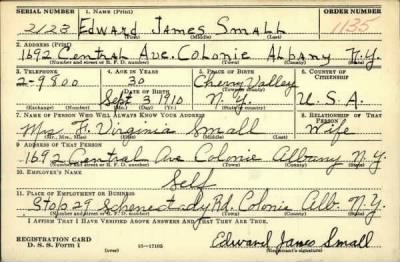 SERIAL NUMBER 1. NAME (Print) ORDER NUMBER
2123 Edward James Small 1135
(First) (Middle) (Last)
2. ADDRESS (Print)
1692 Central Ave. Colonie Albany N.Y.
(Number and street or R. F. D. number) (Town) (County) (State)
3. TELEPHONE 4. AGE IN YEARS 5. PLACE OF BIRTH 6. COUNTRY OF CITIZENSHIP
2-9800 30 Cherry Valley
DATE OF BIRTH (Town or county)
Sept 3 1910 N.Y. U.S.A.
(Exchange) (Number) (Mo.) (Day) (Yr.) (State or country)
7. NAME OF PERSON WHO WILL ALWAYS KNOW YOUR ADDRESS 8. RELATIONSHIP OF THAT PERSON
Mrs. Virginia Small Wife
(Mr., Mrs., Miss) (First) (Middle) (Last)
9. ADDRESS OF THAT PERSON
1692 Central Ave Colonie Albany N.Y.
(Number and street or R. F. D. number) (Town) (County) (State)
10. EMPLOYER'S NAME
Self
11. PLACE OF EMPLOYMENT OR BUSINESS
Stop 29 Schenectady Rd. Colonie Alb. N.Y.
(Number and street or R. F. D. number) (Town) (County) (State)
I AFFIRM THAT I HAVE VERIFIED ABOVE ANSWERS AND THAT THEY ARE TRUE.
REGISTRATION CARD
D. S. S. Form 1 (over) 16-17105 Edward James Small
(Registrant's signature)